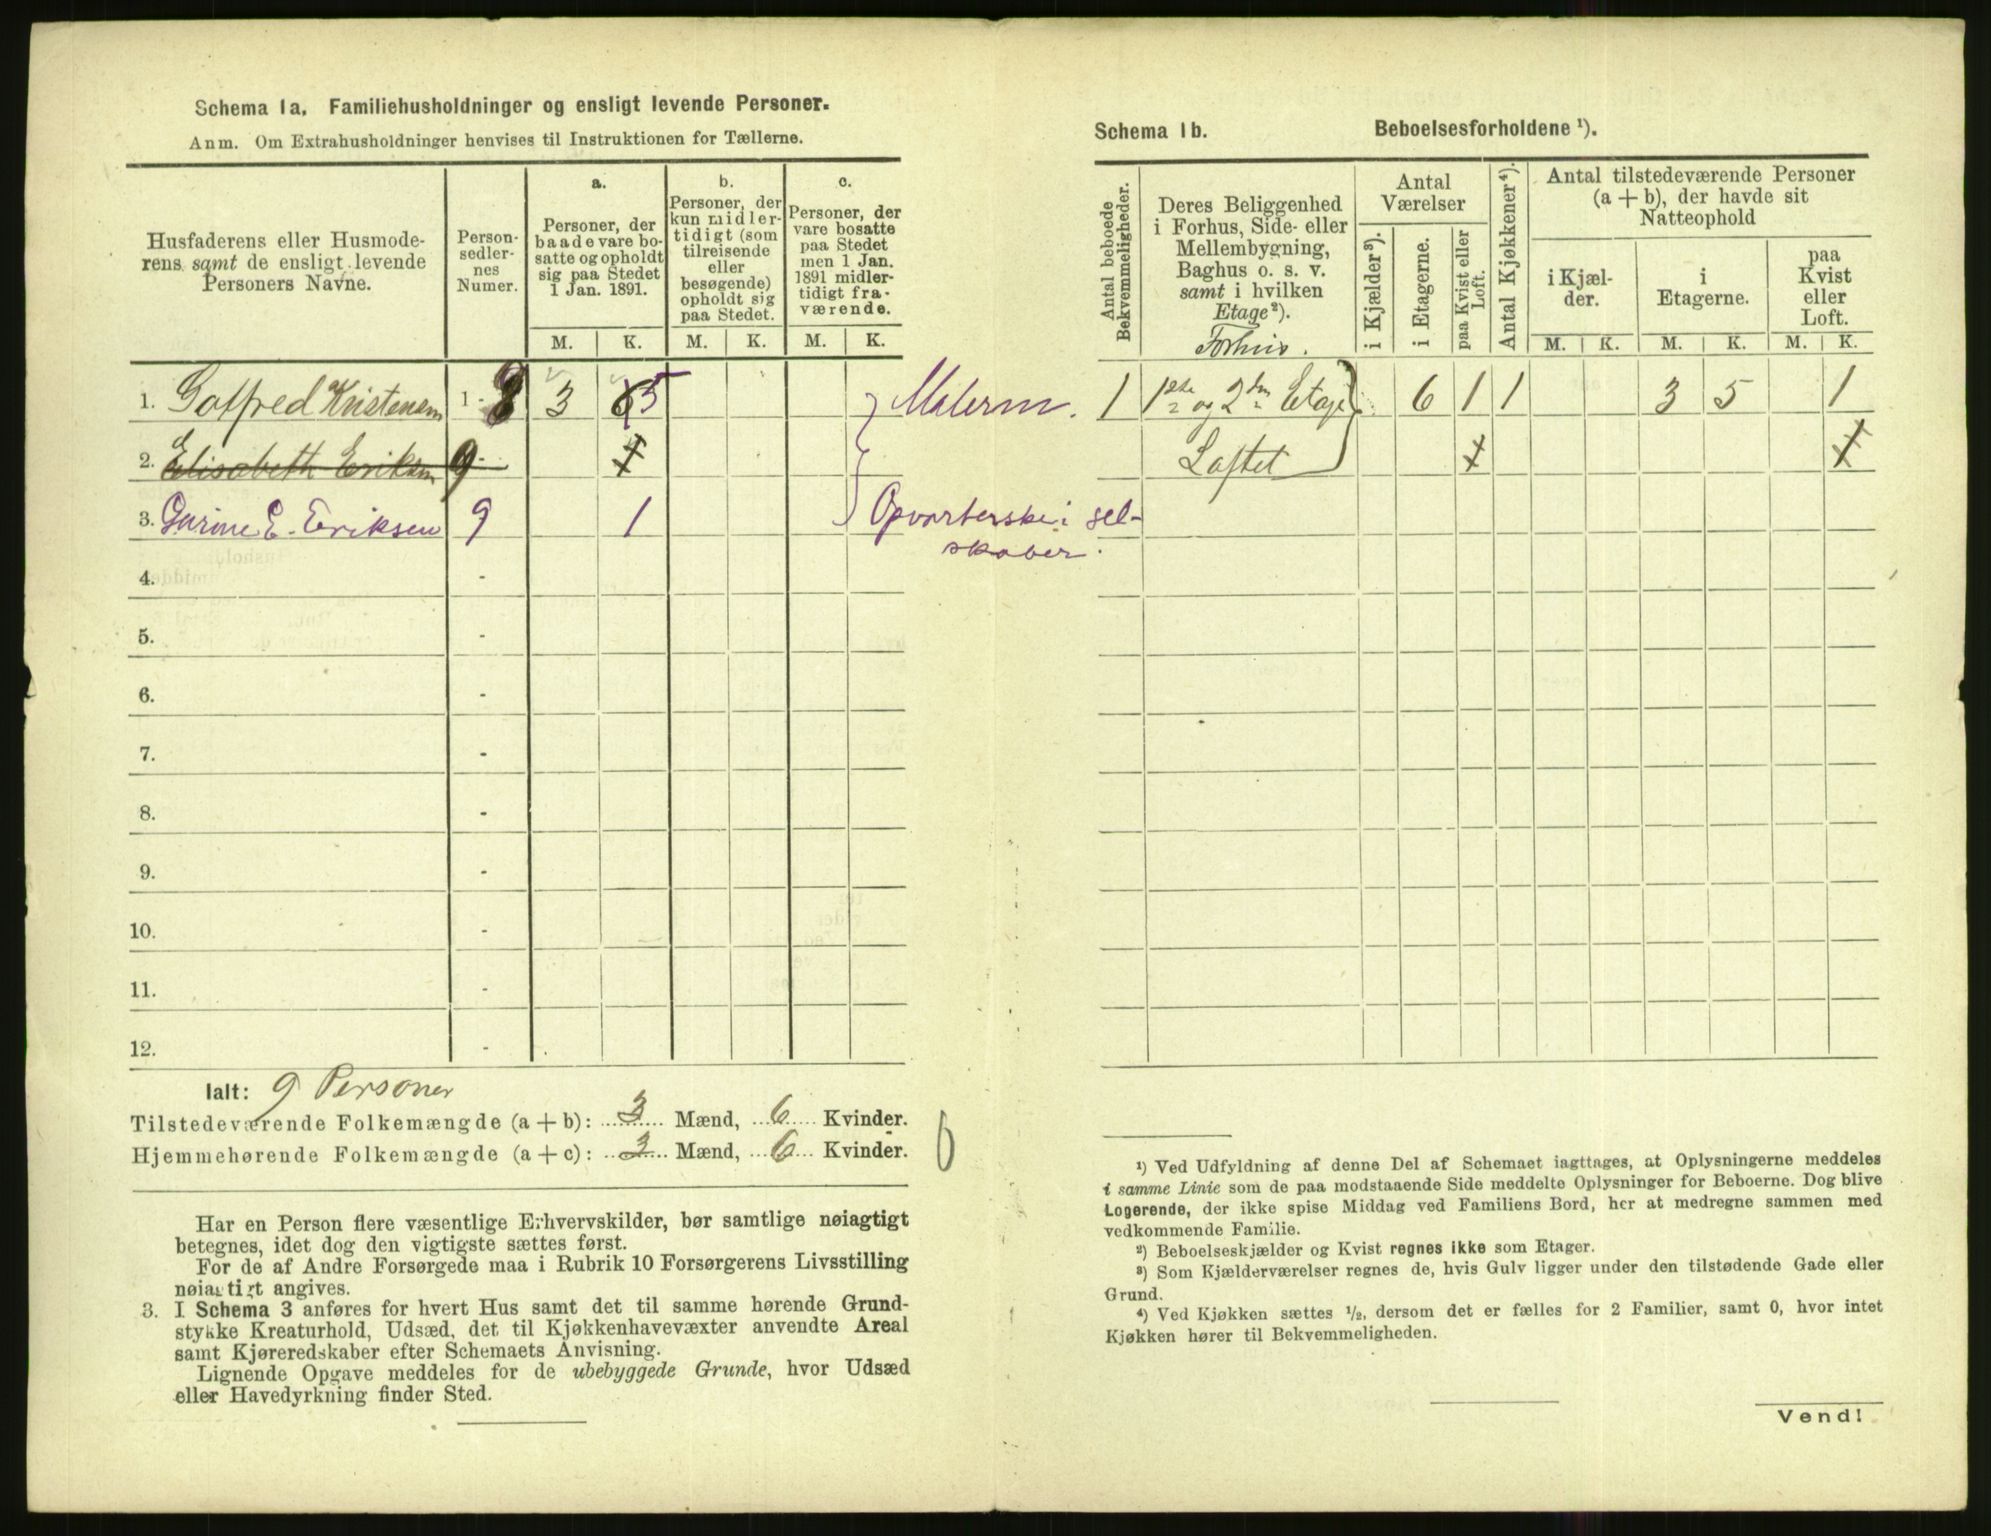 Schema 1a. Familiehusholdninger og ensligt levende Personer.
Anm. Om Extrahusholdninger henvises til Instruktionen for Tællerne.
Husfaderens eller Husmode-
rens samt de ensligt levende
Personers Navne.
Person-
sedler-
nes
Numer.
a.
Personer, der
baade vare bo-
satte og opholdt
sig paa Stedet
1 Jan. 1891.
b.
Personer, der
kun midler-
tidigt (som
tilreisende
eller
besøgende)
opholdt sig
paa Stedet.
c.
Personer, der
vare bosatte
paa Stedet
men 1 Jan.
1891 midler-
tidigt fra-
værende.
M. K. M. K. M. K.
1. Gotfred Kristensen 1 - 8 3 5
2. Elisabeth Eriksen 9 - 1
3. Gurine E. Eriksen 9 1
4. -
5. -
6. -
7. -
8. -
9. -
10. -
11. -
12. -
Malerm.
Opvarterske i sel-
skaber.
Ialt: 9 Personer
Tilstedeværende Folkemængde (a + b): 3 Mænd, 6 Kvinder.
Hjemmehørende Folkemængde (a + c): 3 Mænd, 6 Kvinder.
Har en Person flere væsentlige Erhvervskilder, bør samtlige nøiagtigt
betegnes, idet dog den vigtigste sættes først.
For de af Andre Forsørgede maa i Rubrik 10 Forsørgerens Livsstilling
nøiagtigt angives.
3. I Schema 3 anføres for hvert Hus samt det til samme hørende Grund-
stykke Kreaturhold, Udsæd, det til Kjøkkenhavevæxter anvendte Areal
samt Kjøreredskaber efter Schemaets Anvisning.
Lignende Opgave meddeles for de ubebyggede Grunde, hvor Udsæd
eller Havedyrkning finder Sted.
Schema 1b. Beboelsesforholdene ¹).
Antal beboede
Bekvemmeligheder.
Deres Beliggenhed
i Forhus, Side- eller
Mellembygning,
Baghus o. s. v.
samt i hvilken
Etage²).
Forhus.
Antal
Værelser
i Kjælder³).
i Etagerne.
paa Kvist eller
Loft.
Antal Kjøkkener⁴).
Antal tilstedeværende Personer
(a + b), der havde sit
Natteophold
i Kjæl-
der.
i
Etagerne.
paa
Kvist
eller
Loft.
M. K. M. K. M. K.
1 1ste og 2den Etage 6 1 1 3 5 1
Loftet 1 1
¹) Ved Udfyldning af denne Del af Schemaet iagttages, at Oplysningerne meddeles
i samme Linie som de paa modstaaende Side meddelte Oplysninger for Beboerne. Dog blive
Logerende, der ikke spise Middag ved Familiens Bord, her at medregne sammen med
vedkommende Familie.
²) Beboelseskjælder og Kvist regnes ikke som Etager.
³) Som Kjælderværelser regnes de, hvis Gulv ligger under den tilstødende Gade eller
Grund.
⁴) Ved Kjøkken sættes ¹/₂, dersom det er fælles for 2 Familier, samt 0, hvor intet
Kjøkken hører til Bekvemmeligheden.
Vend!